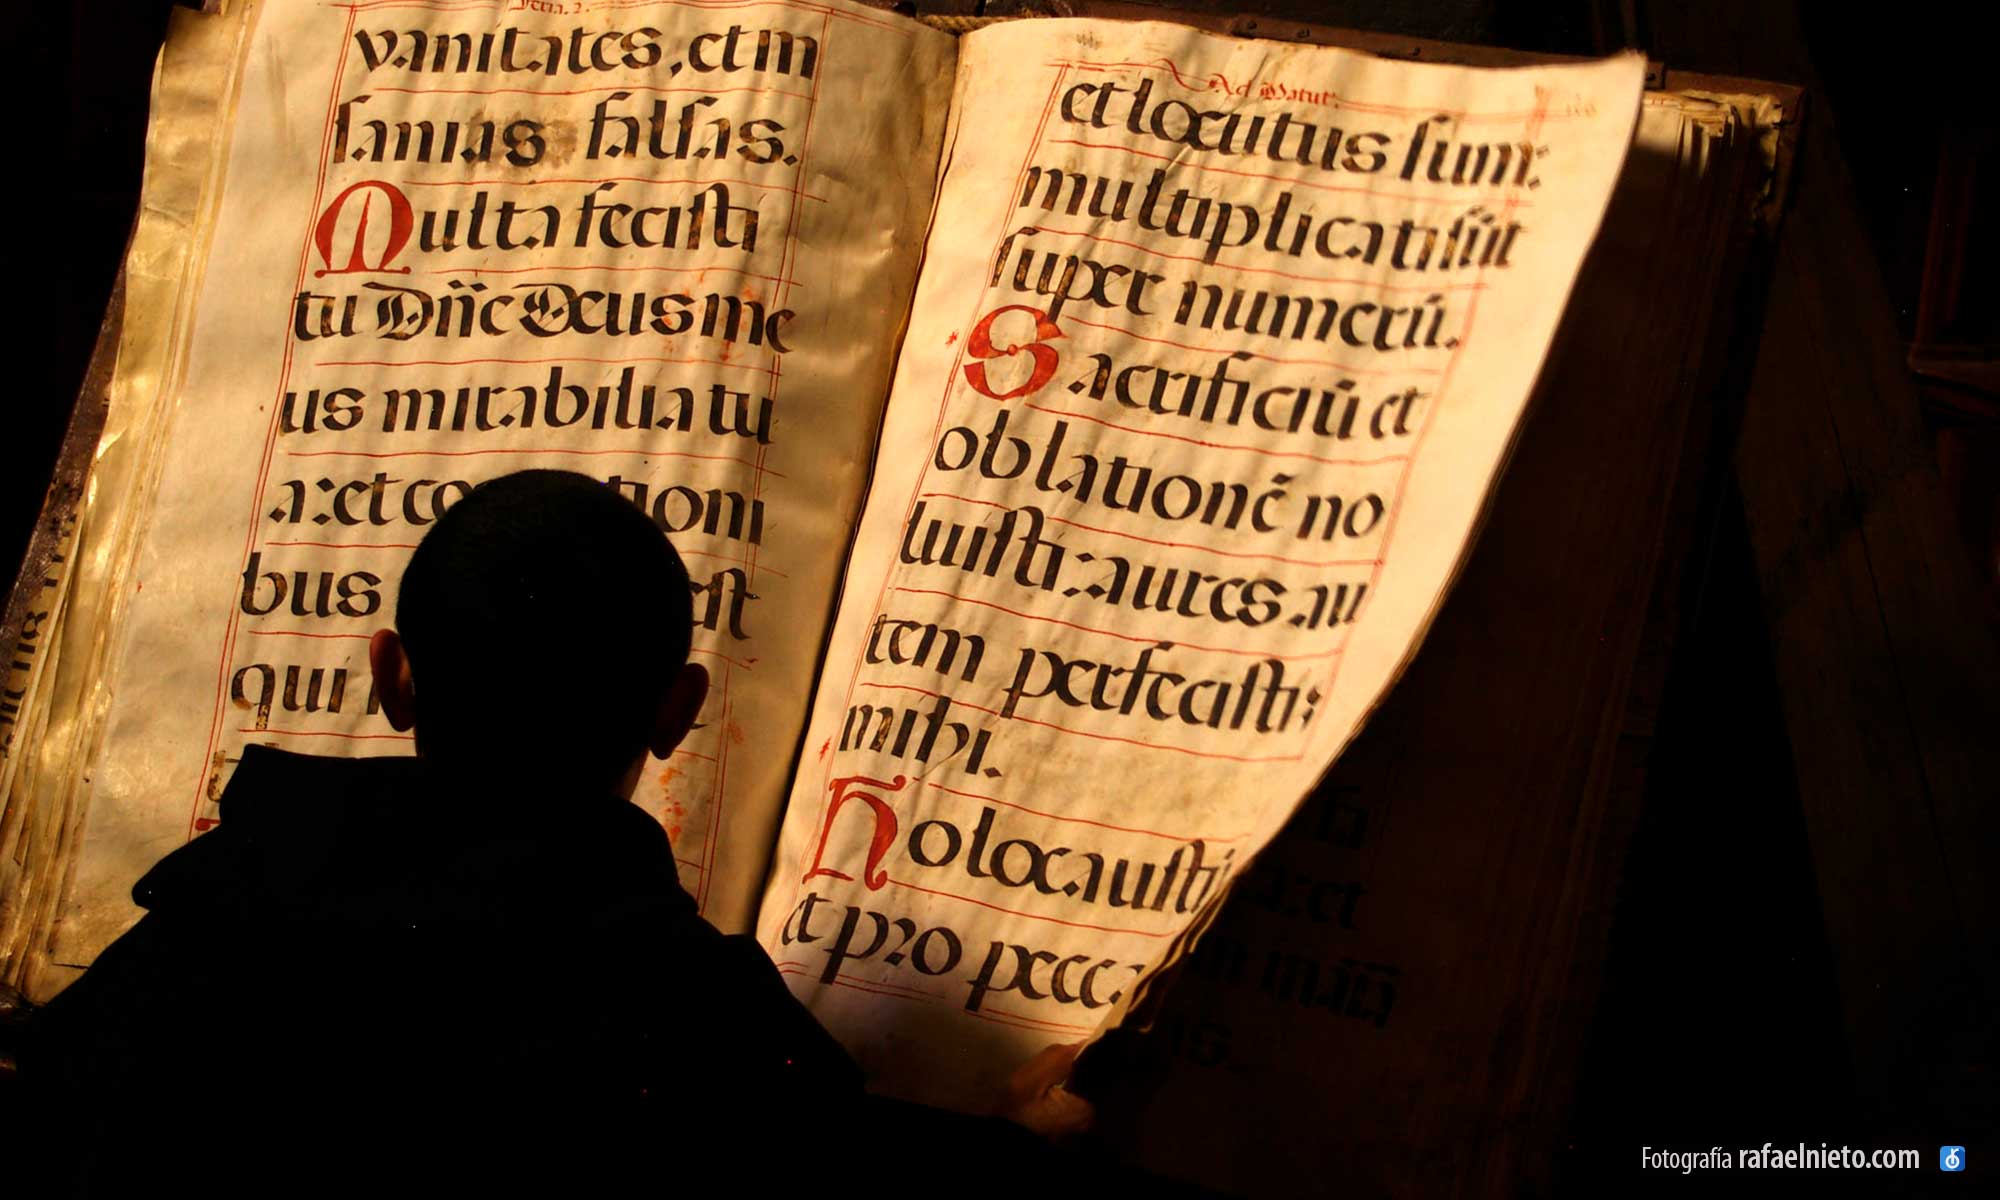 Feria. 2.
vanitates, et in
sanias falsas.
Multa fecisti
tu Dñe Deus me
us mirabilia tu
a: et co tioni
bus est
qui
Ad Matut.
et locutus sum:
multiplicati sūt
super numerū.
Sacrificiū et
oblationē no
luisti: aures au
tem perfecisti:
mihi.
Holocausti
et pro pecca
Fotografía rafaelnieto.com